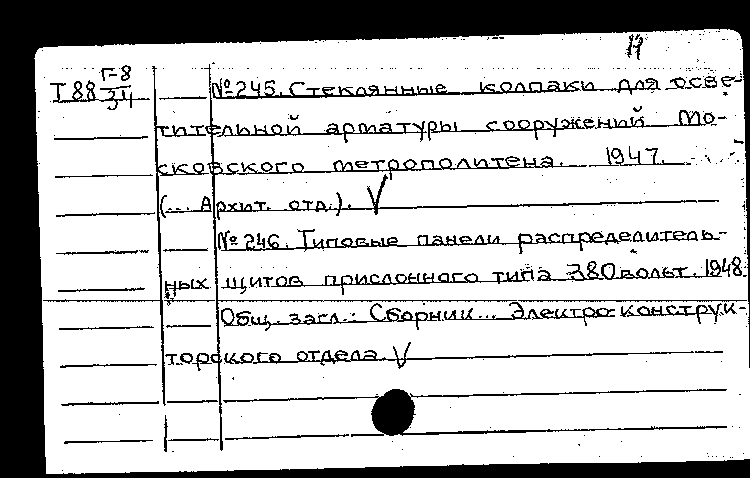 I 88 Г-8
31
№245. Стеклянные колпаки для осве-
тительной арматуры сооружений Мо-
сковского метрополитена. 1947.
(... Архит. отд.). V
№246. Типовые панели распределитель-
ных щитов прислонного типа 380 вольт. 1948.
Общ. загл.: Сборник... Электро-конструк-
торского отдела. V